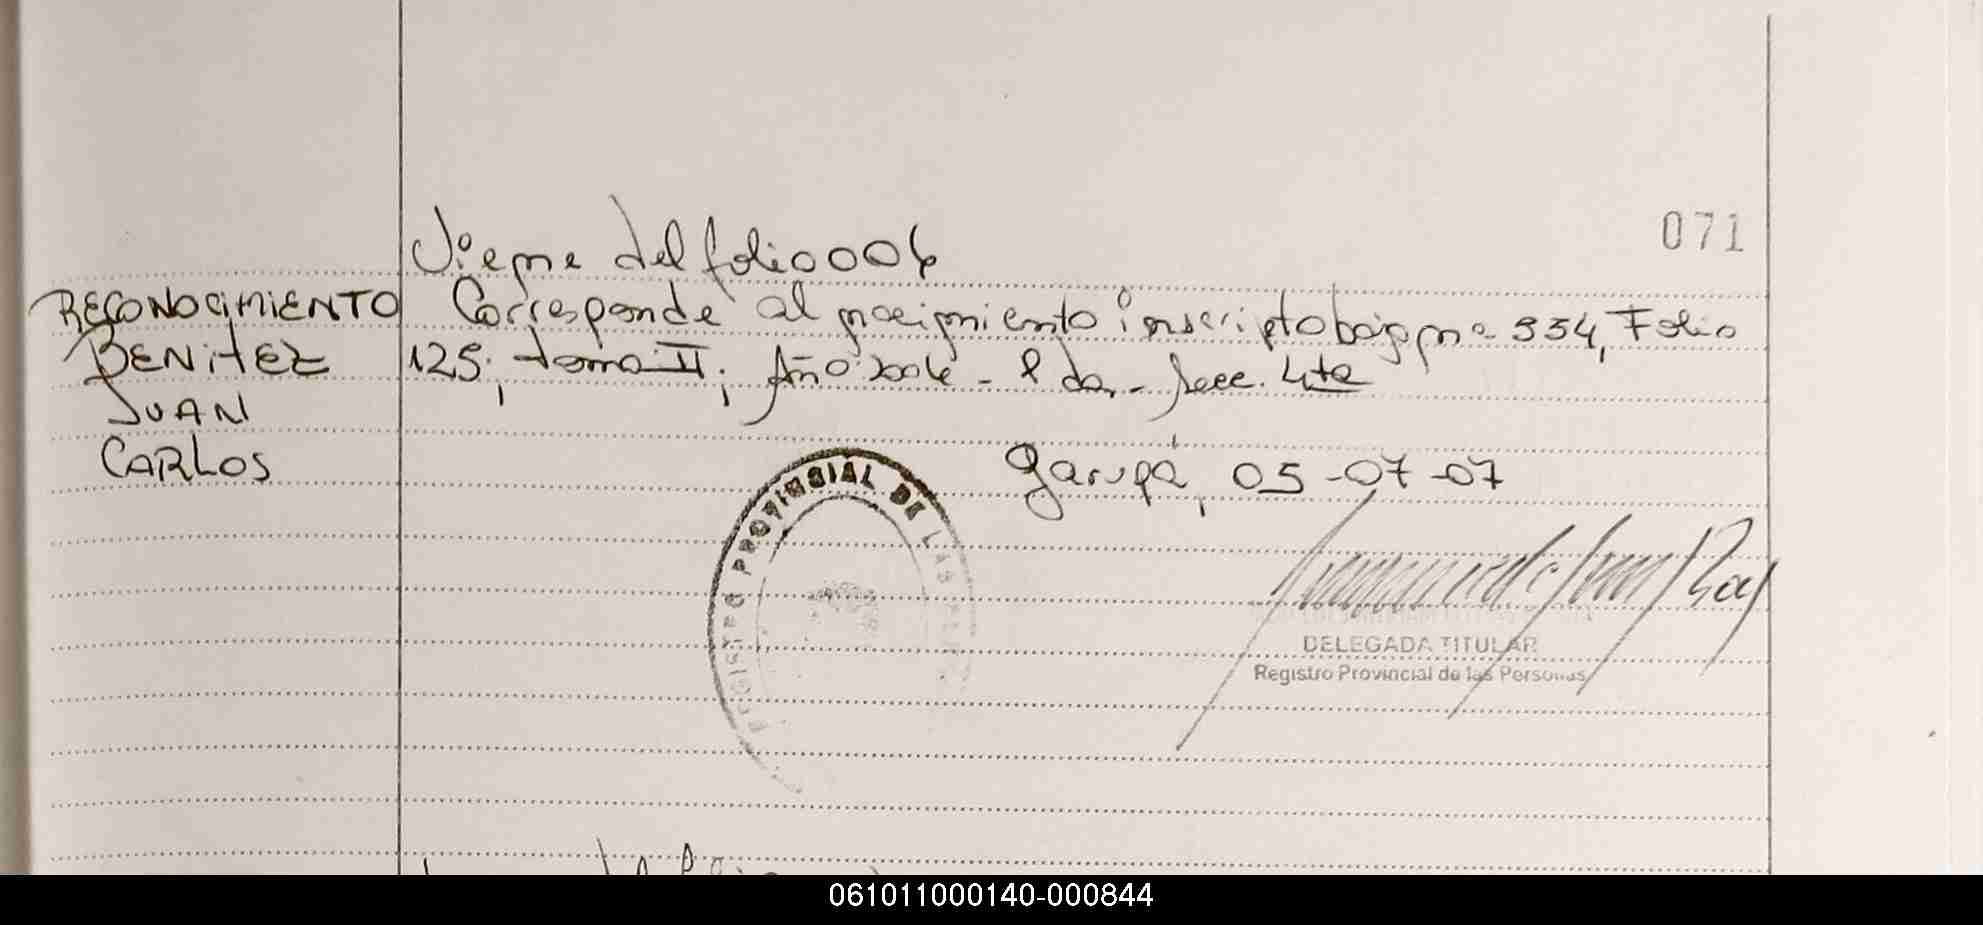 071
Viene del folio 006
RECONOCIMIENTO
BENiTEZ
JUAN
CARLOS
Corresponde al nacimiento inscripto bajo nº 334, Folio
125, tomo II, Año 2006 - Pda. - Secc. 4ta
Garupá, 05-07-07
REGISTRO PROVINCIAL DE LAS
DELEGADA TITULAR
Registro Provincial de las Personas
061011000140-000844